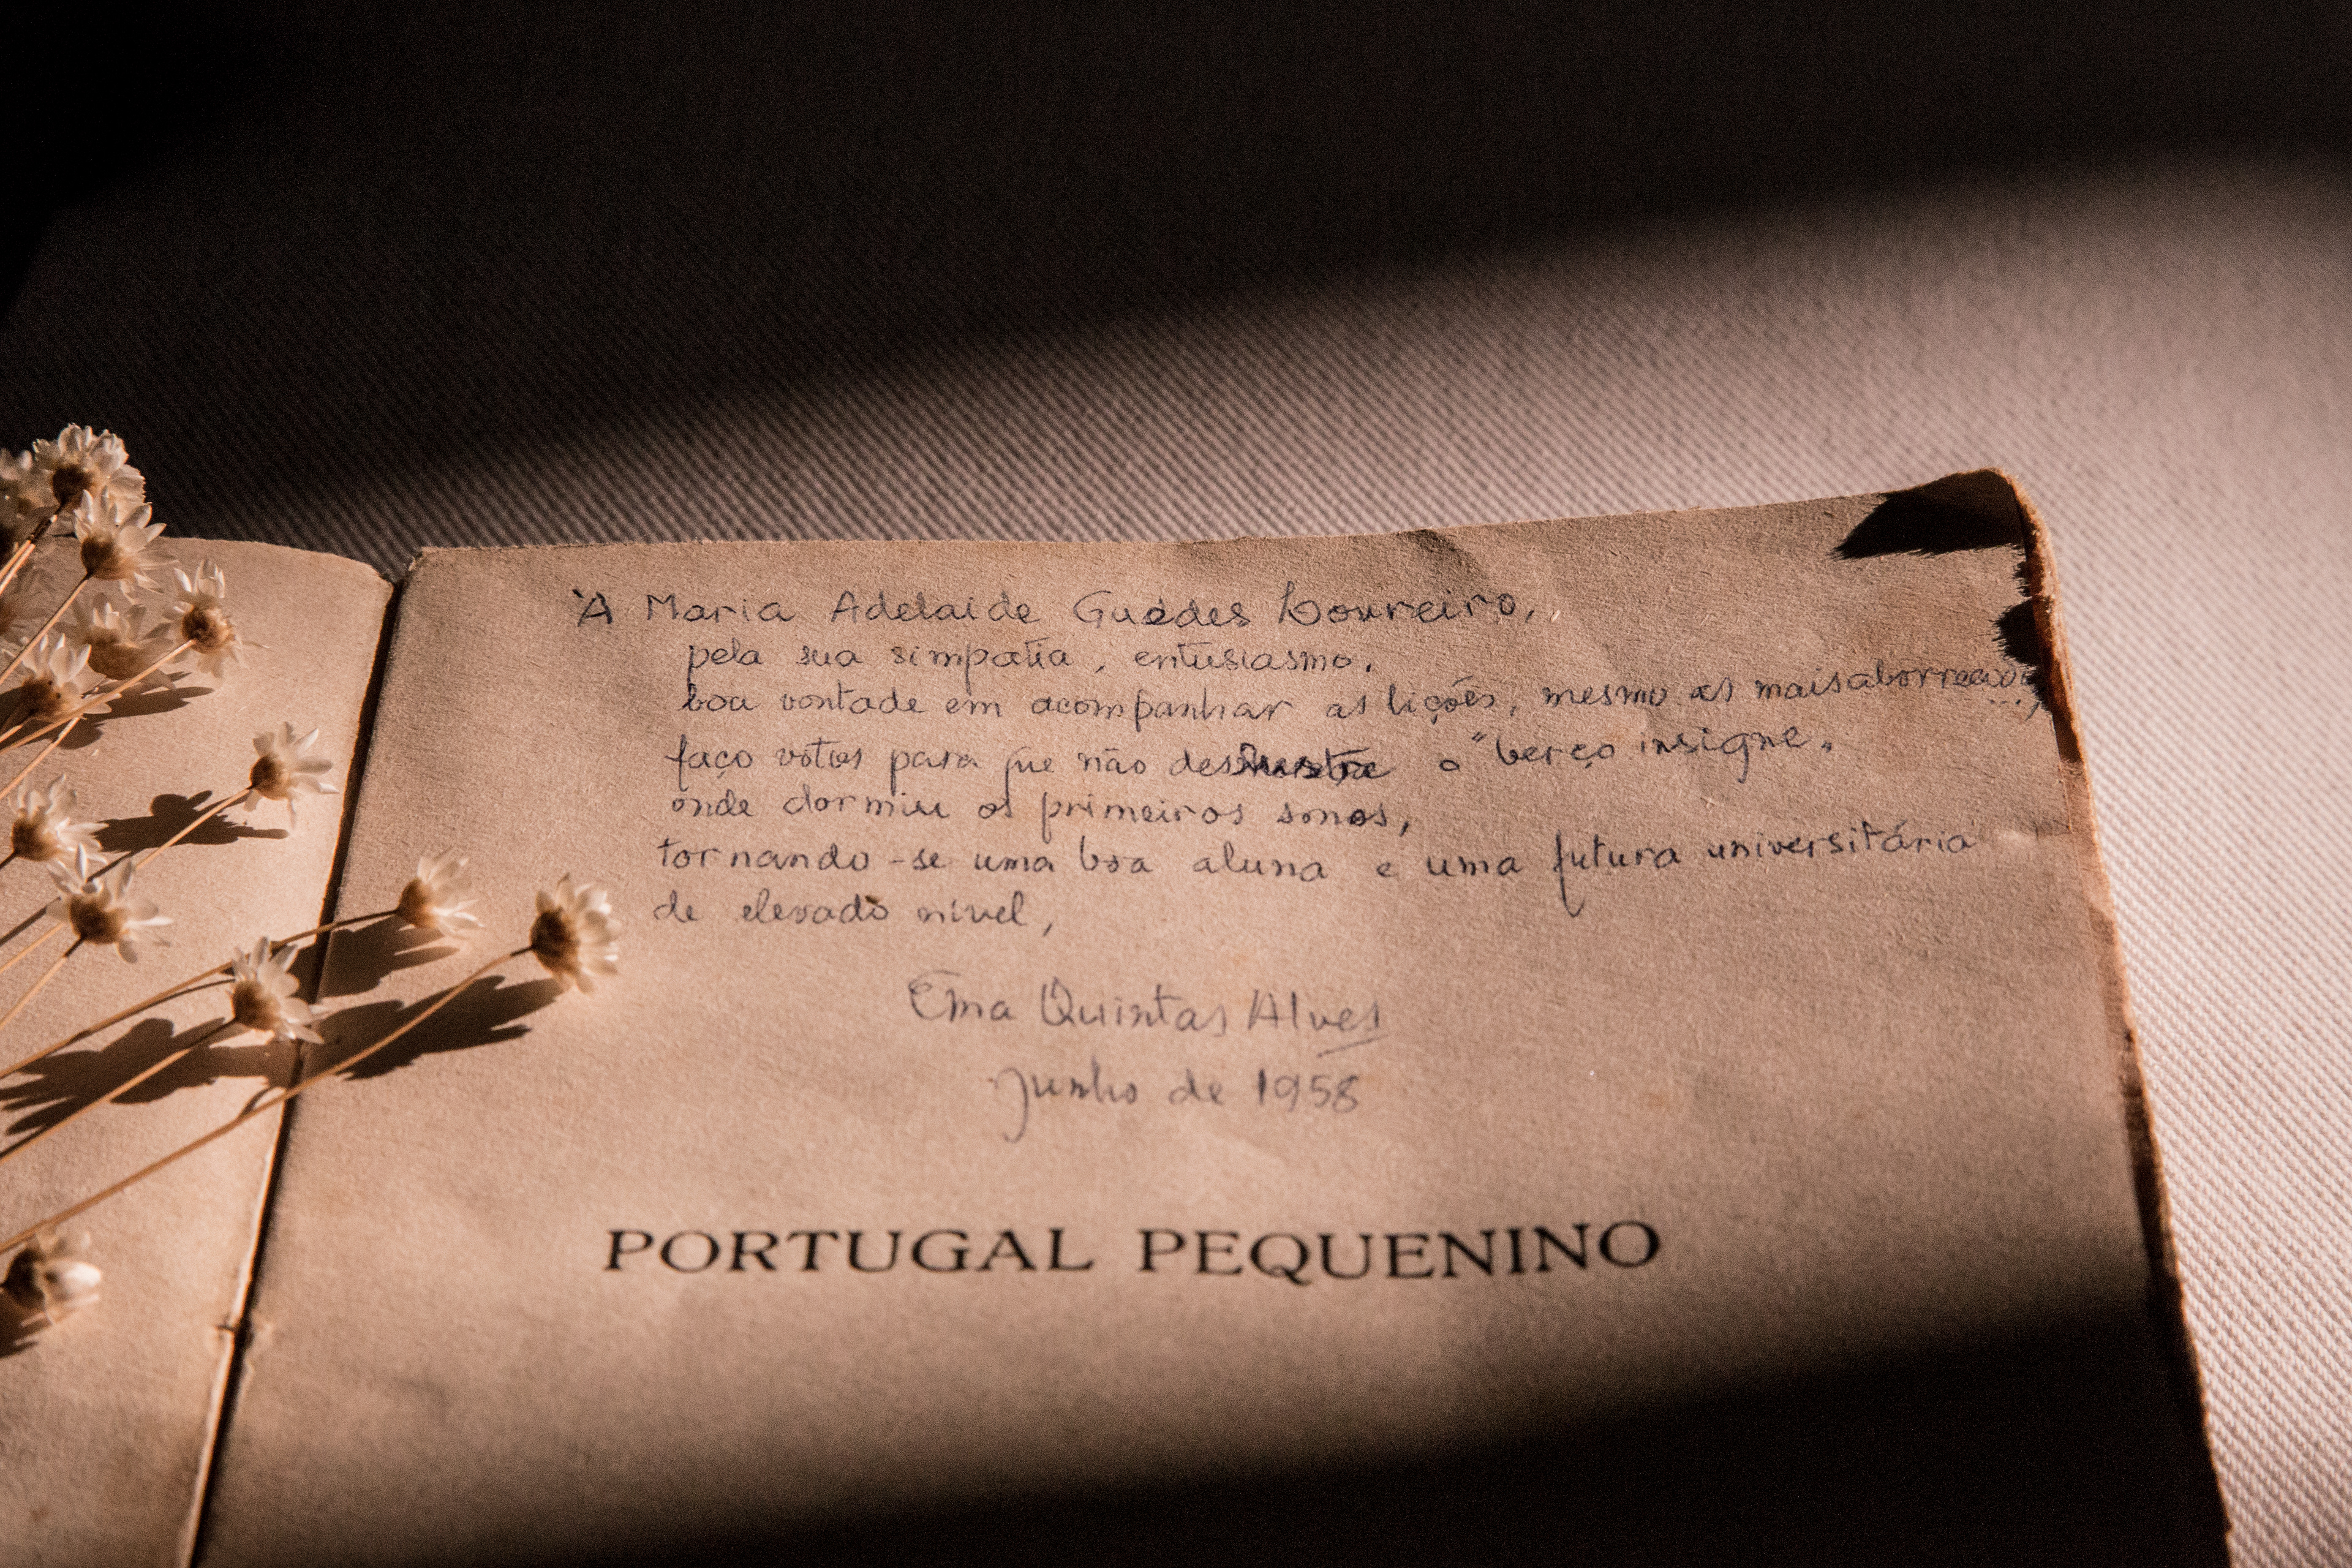 À Maria Adelaide Guédes Loureiro,
pela sua simpatia, entusiasmo,
boa vontade em acompanhar as lições, mesmo as mais aborrecidas...,
faço votos para que não deslustre o "berço insigne"
onde dormiu os primeiros sonos,
tornando-se uma boa aluna e uma futura universitária
de elevado nível,
Ema Quintas Alves
Junho de 1958
PORTUGAL PEQUENINO